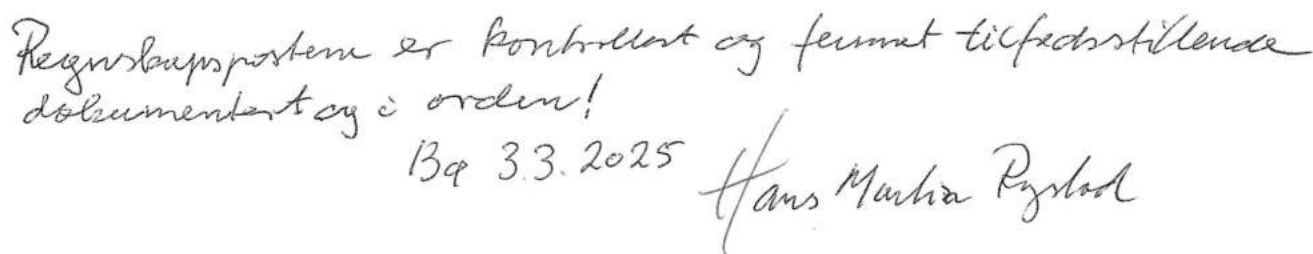 Regnskapspostene er kontrollert og funnet tilfredsstillende
dokumentert og i orden!
Bø 3.3.2025
Hans Martin Rystad